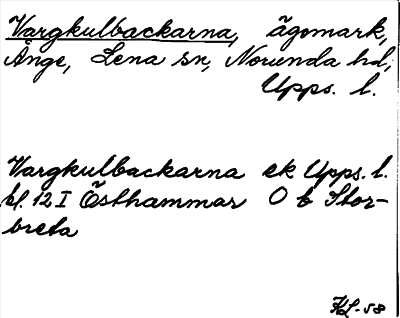 Vargkulbackarna, ägomark,
Ånge, Lena sn, Norunda hd,
Upps. l.
Vargkulbackarna ek Upps. l.
bl. 12 I Östhammar O b Stor-
breta
KL-58